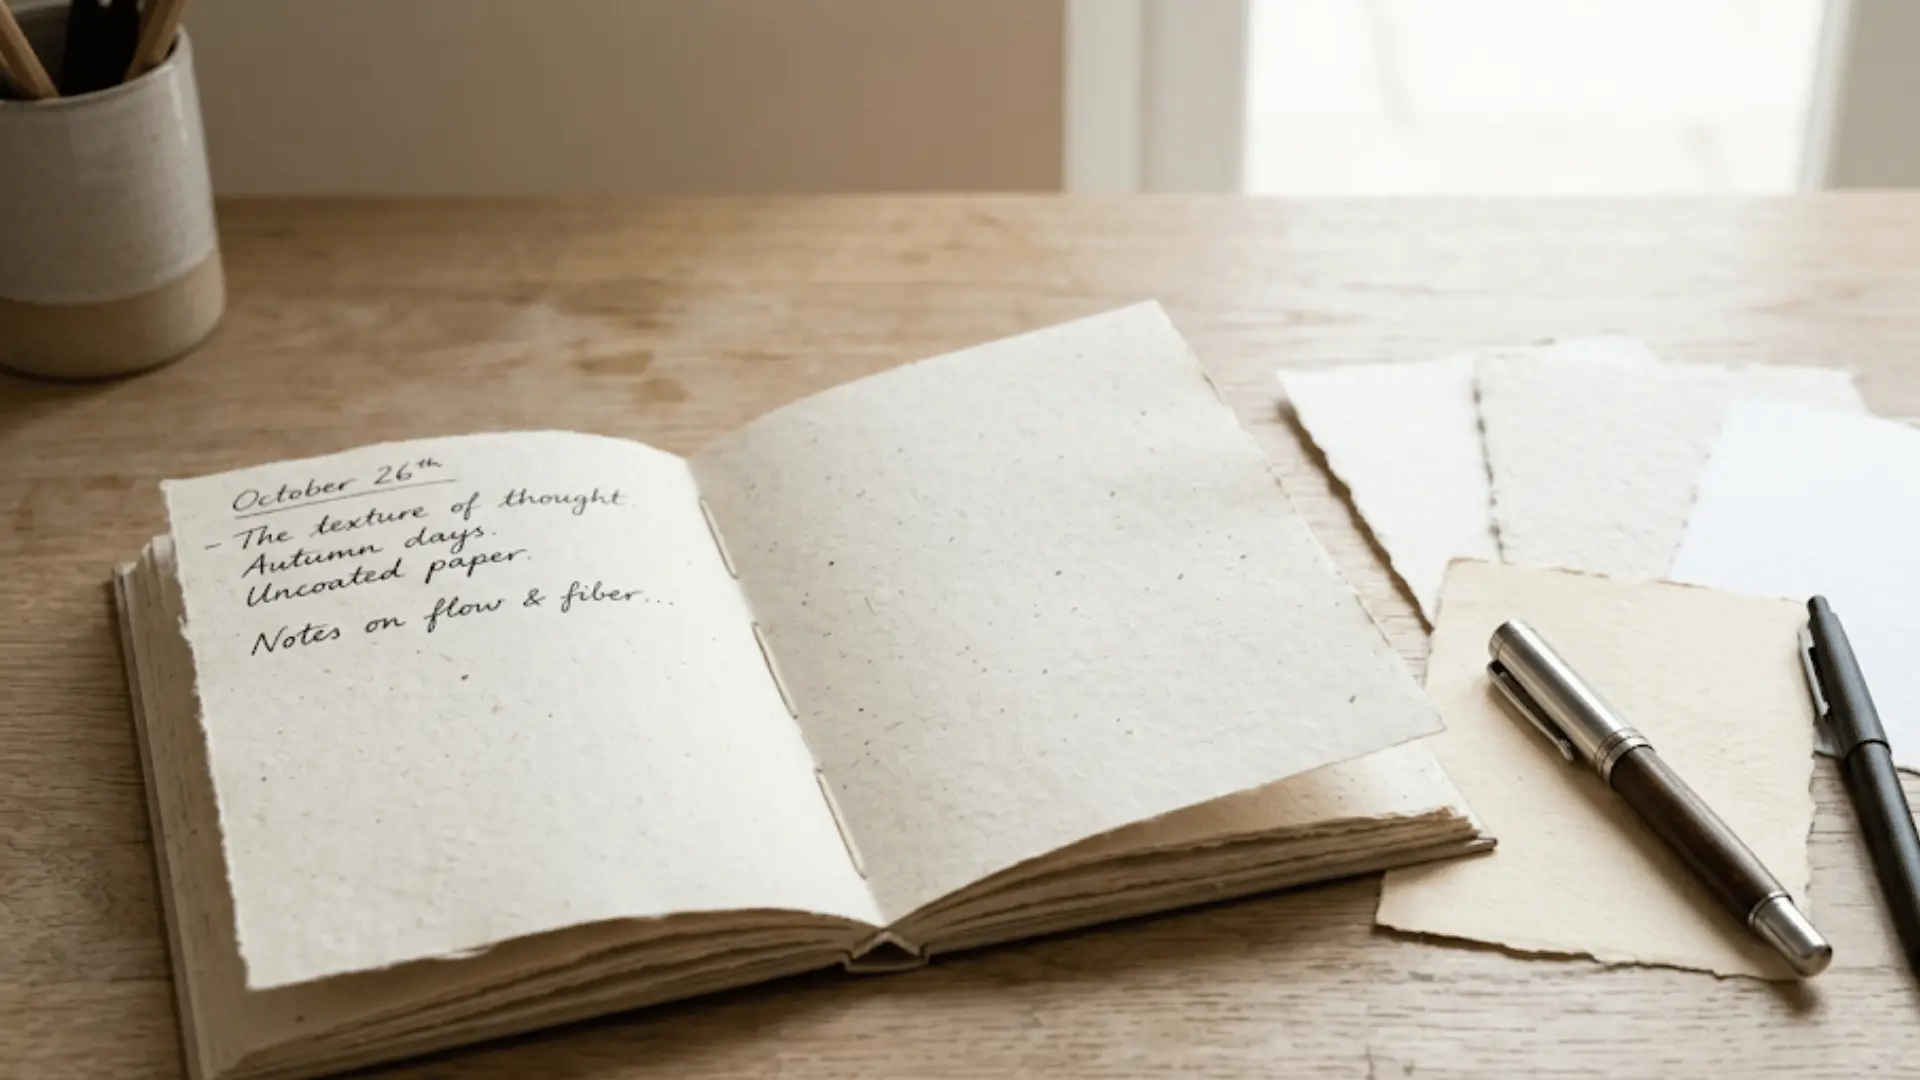 October 26th
- The texture of thought.
Autumn days.
Uncoated paper.
Notes on flow & fiber...